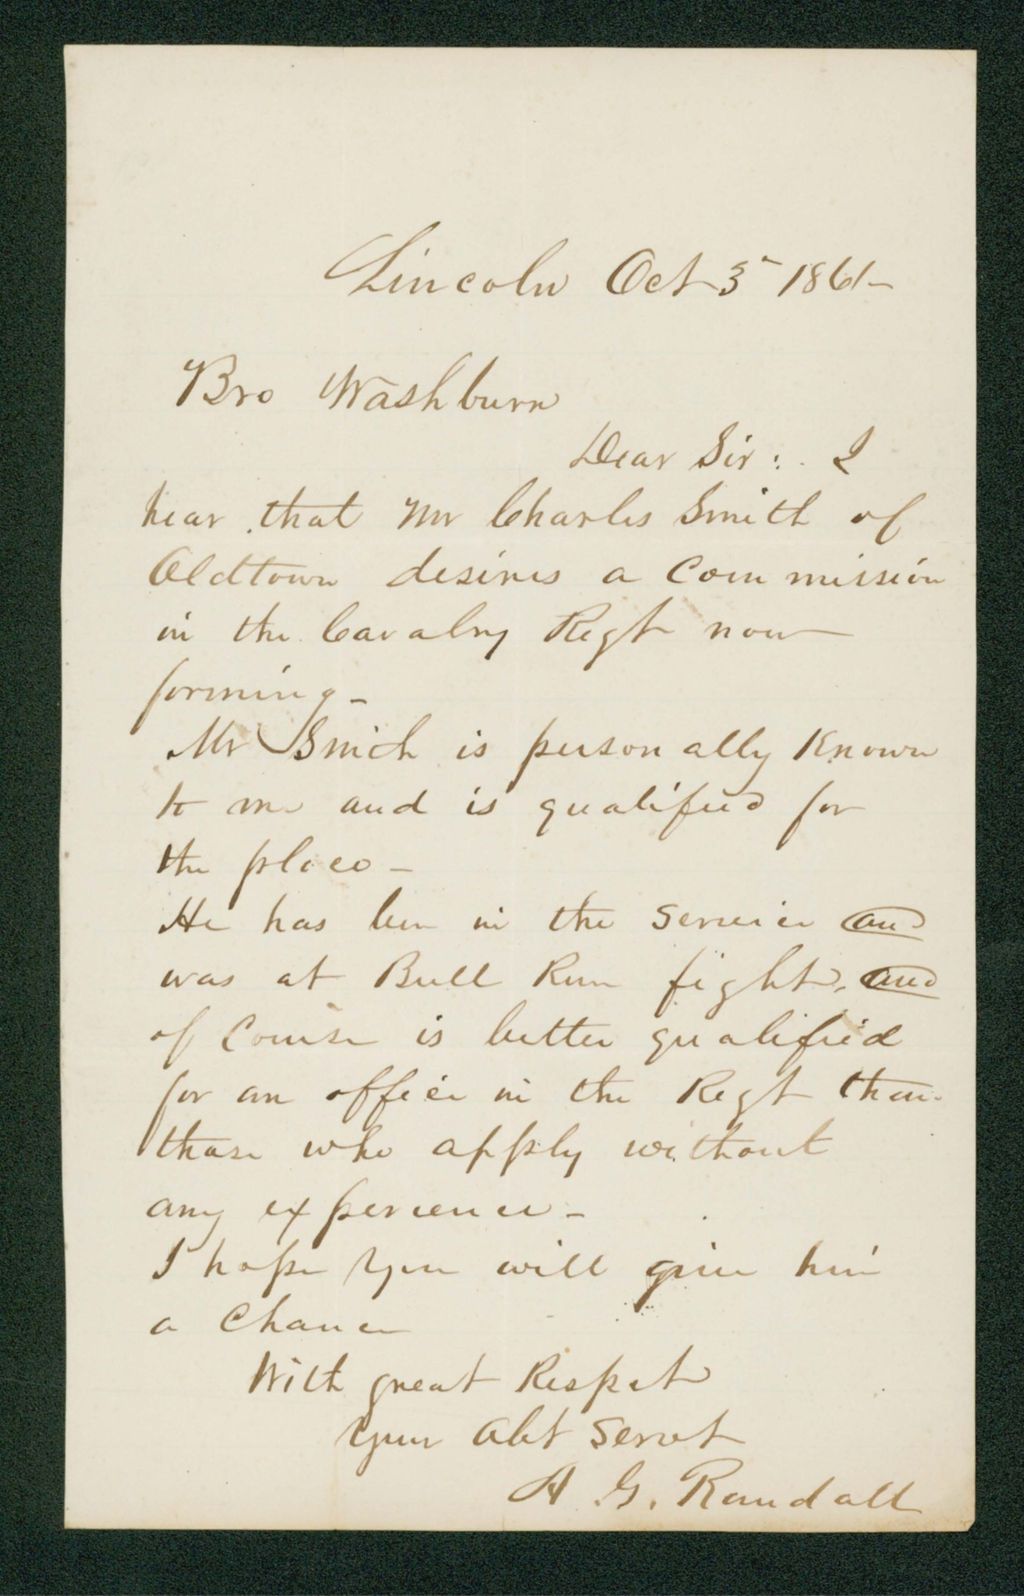 Lincoln Oct 5 1861-
Bro Washburn
Dear Sir: I
hear that Mr Charles Smith of
Oldtown desires a Commission
in the Cavalry Regt now
forming-
Mr Smith is personally Known
to me and is qualified for
the place-
He has been in the Service and
was at Bull Run fight, and
of Course is better qualified
for an officer in the Regt than
those who apply without
any experience-
I hope you will give him
a Chance
With great Respect
Your Obt Servt
A G. Randall